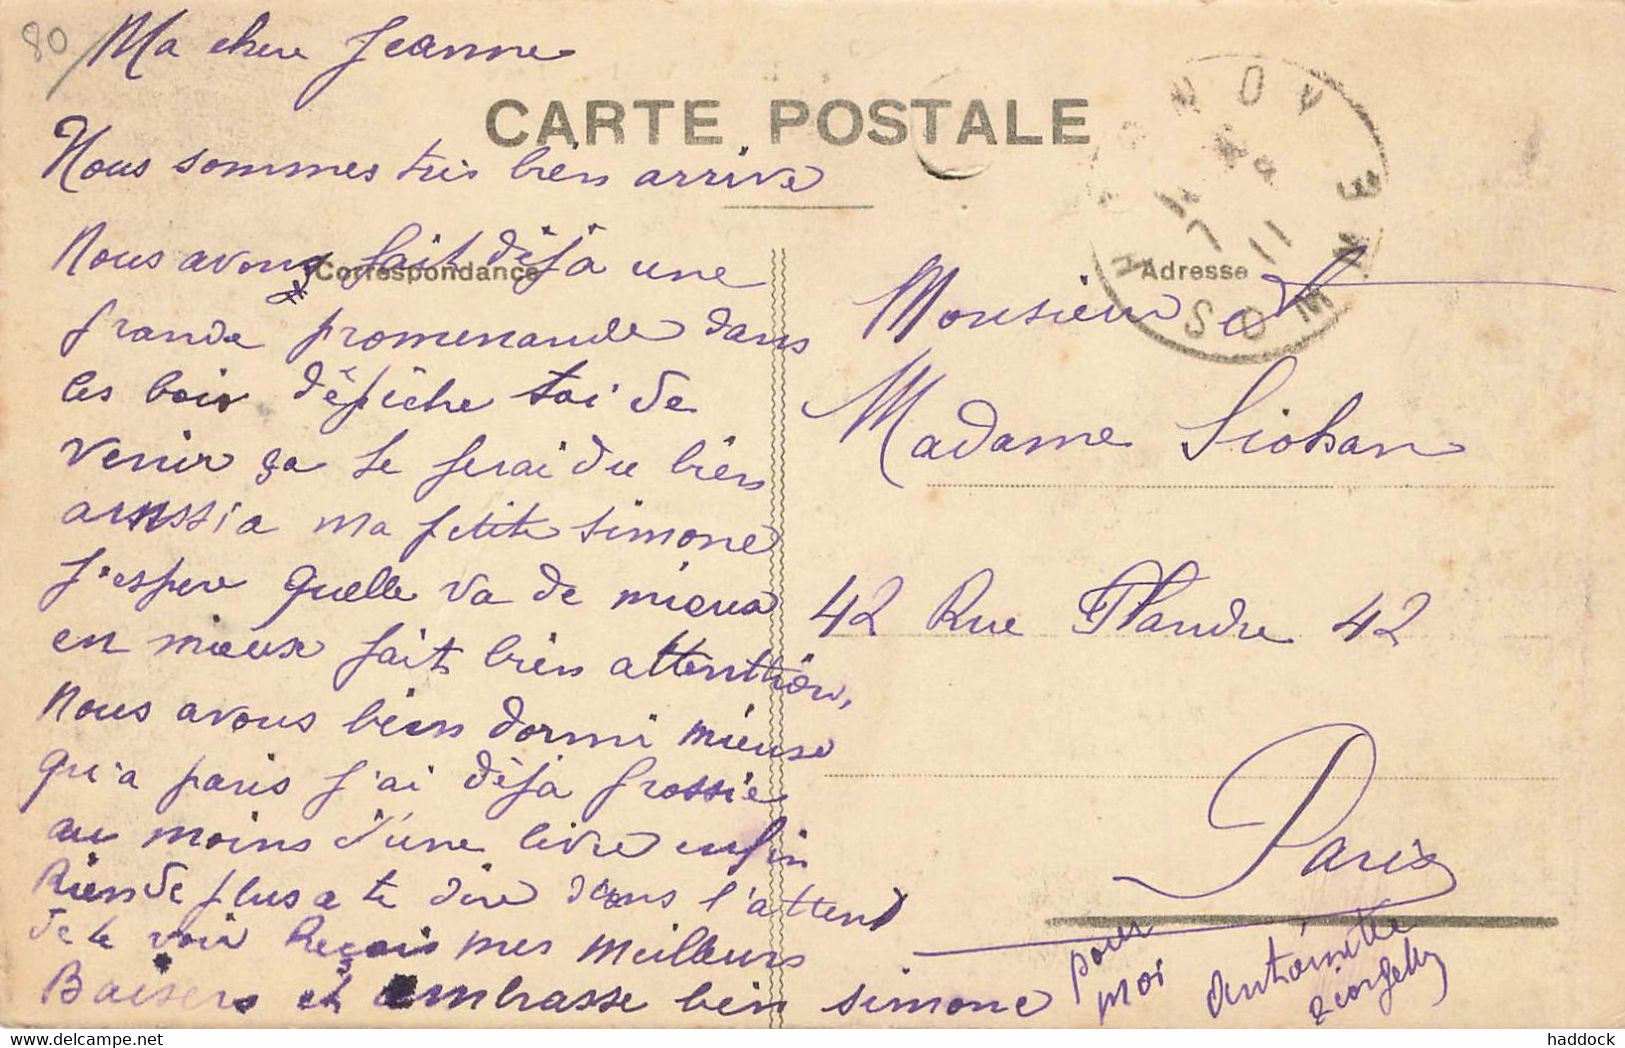 80
Ma chere Jeanne
CARTE POSTALE
Nous sommes tres bien arrive
Nous avons fait déja une
Correspondance
grande promenande dans
les bois dépéche toi de
venir ça te ferai du bien
aussi a ma petite simone
j'espere quelle va de mieux
en mieux fait bien attenttion,
Nous avous bien dormi mieuse
qu'a paris j'ai déja grossie
au moins d'une livre enfin
Rien de plus a te dire dans l'attend
de te voir Reçois mes meilleurs
Baisers et embrasse bien simone
pour
moi
Antoinette
Georgette
Adresse
Monsieur et
Madame Siohan
42 Rue Flandre 42
Paris
SOMME
7
11
haddock ©